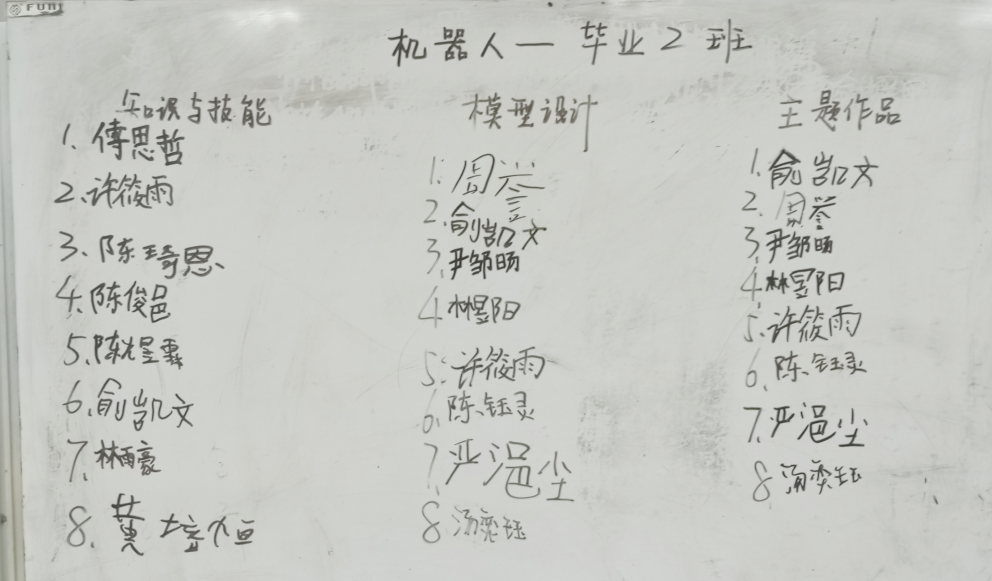 FUNI
机器人一 毕业2班
知识与技能
1. 傅思哲
2. 许筱雨
3. 陈琦恩
4. 陈俊邑
5. 陈煜霖
6. 俞凯文
7. 林雨豪
8. 黄培恒
模型设计
1. 周誉
2. 俞凯文
3. 尹邹旸
4. 林昱阳
5. 许筱雨
6. 陈钰灵
7. 严浥尘
8 汤奕钰
主题作品
1. 俞凯文
2. 周誉
3. 尹邹旸
4. 林昱阳
5. 许筱雨
6. 陈钰灵
7. 严浥尘
8 汤奕钰